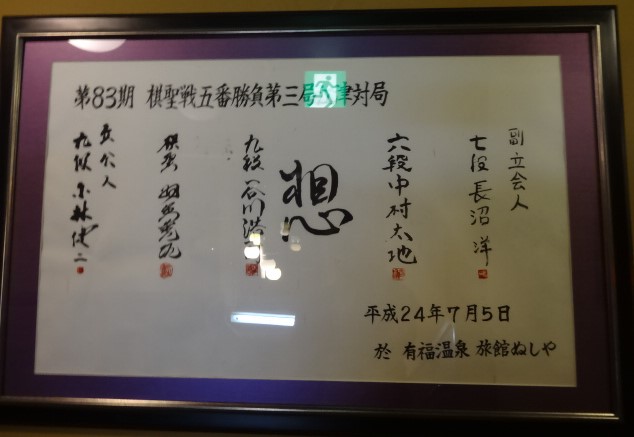 第83期 棋聖戦五番勝負第三局 津対局
副立会人
七段 長沼 洋
六段 中村太地
想
九段 谷川浩司
棋聖 羽生善治
立会人
九段 小林健二
平成24年7月5日
於 有福温泉 旅館ぬしや